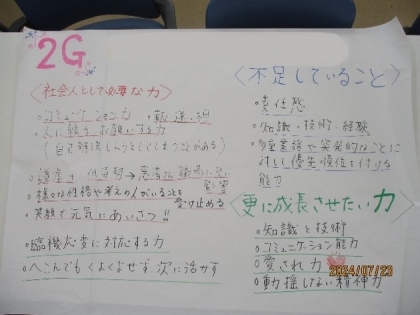 2G
〈社会人として必要な力〉
○コミュニケーション力 → 報・連・相
○人に頼る・お願いする力
(自己解決しようとしてしまうことがある)
○謙虚さ
○様々な性格や考えの人がいることを
受け止める
○笑顔で元気にあいさつ!!
○臨機応変に対応する力
○へこんでもくよくよせず、次に活かす
〈不足していること〉
○責任感
○知識・技術・経験
○多重業務や突発的なことに
対して優先順位を付ける
能力
〈更に成長させたい力〉
○知識と技術
○コミュニケーション能力
○愛され力
○動揺しない精神力
2024/07/23